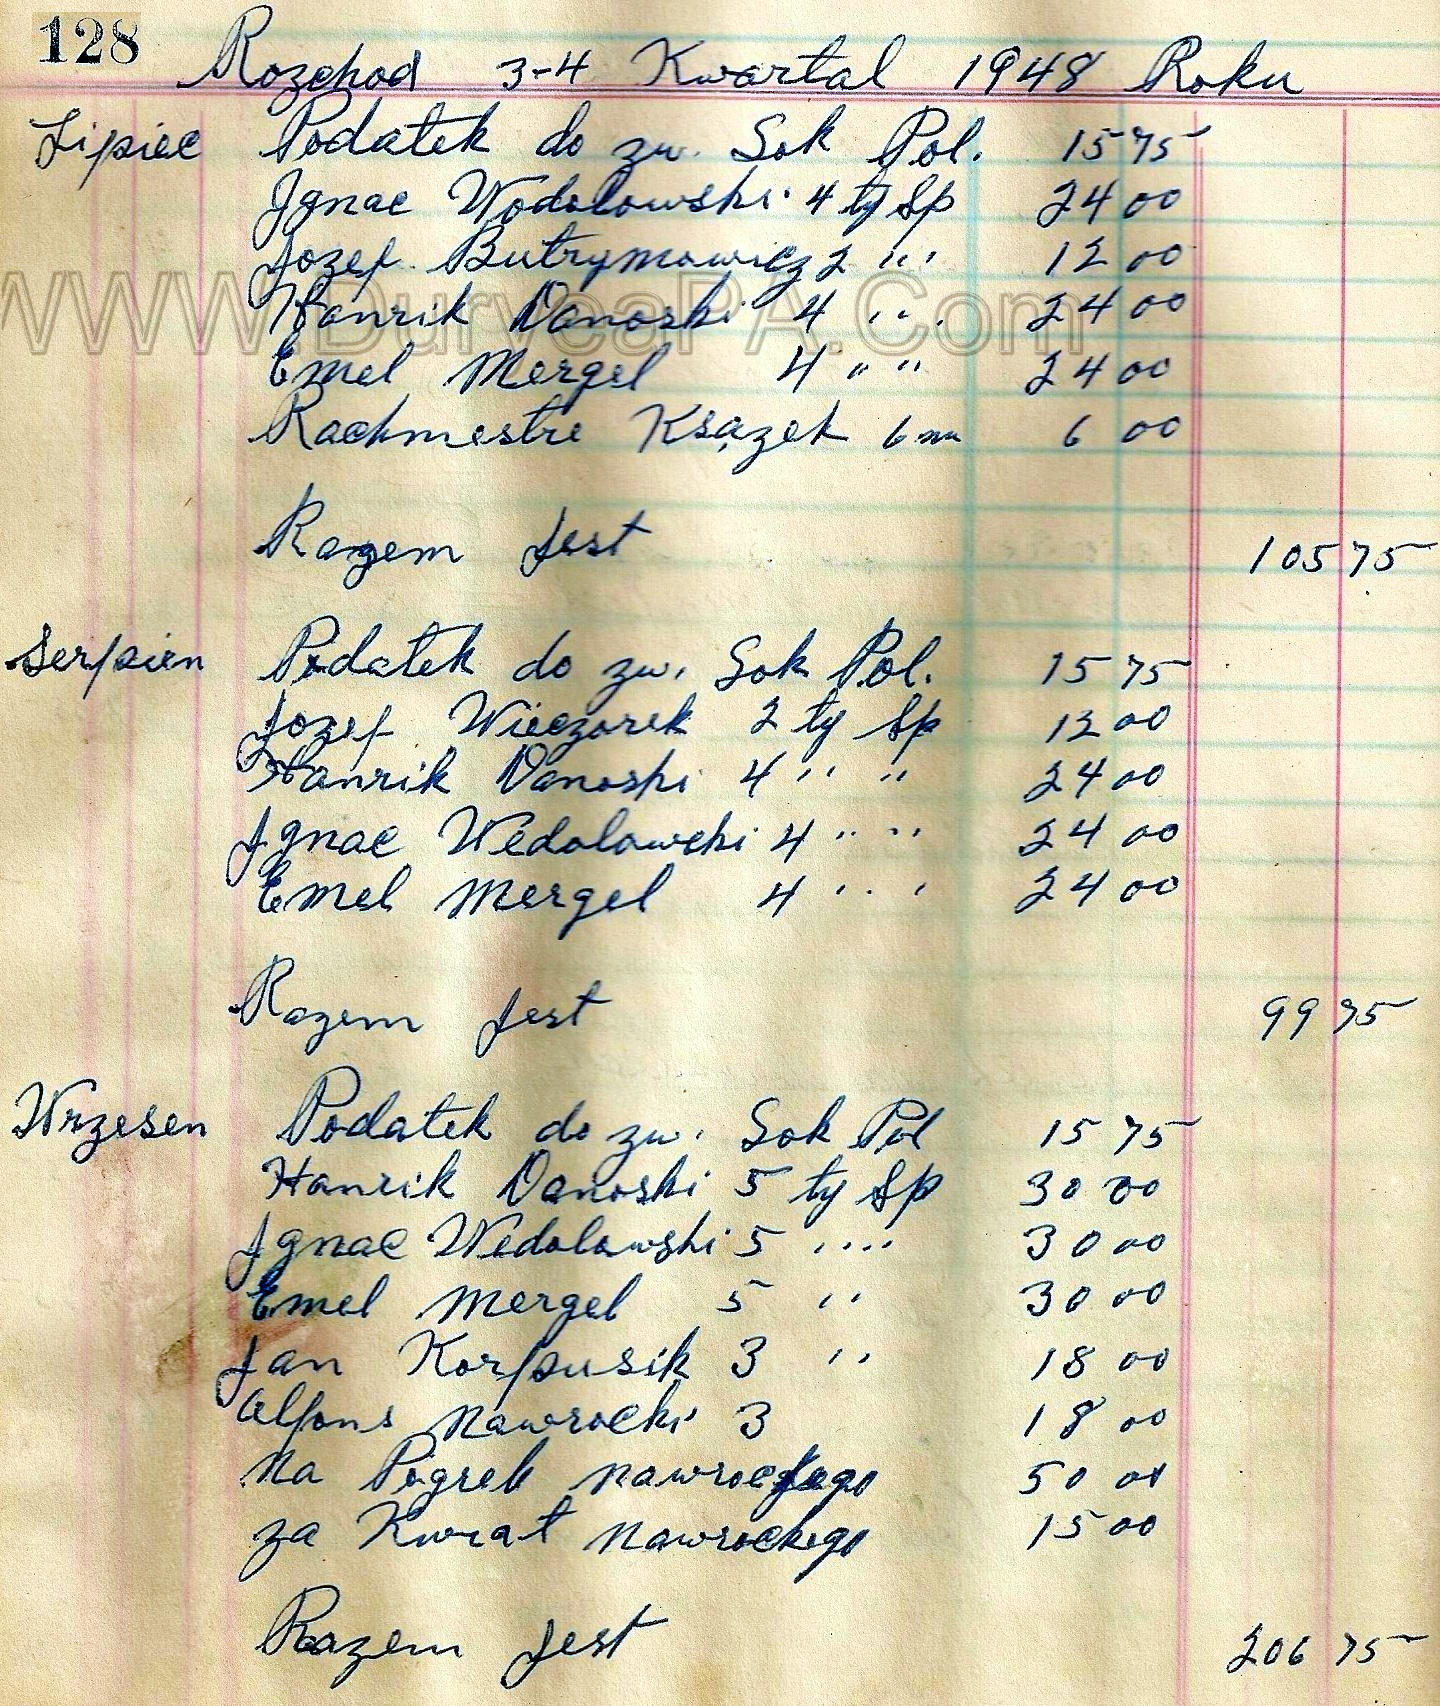 128
Rozchod 3-4 Kwartal 1948 Roku
Lipiec Podatek do zw. Sok Pol. 15 75
Ignac Wodolowski 4 ty Sp 24 00
Jozef Butrymowicz 2 " " 12 00
Hanrik Danoski 4 " " 24 00
Emel Mergel 4 " " 24 00
Rachmestre Ksązek 6 m 6 00
Razem jest 105 75
Serpien Podatek do zw. Sok Pol. 15 75
Jozef Wieczorek 2 ty Sp 12 00
Hanrik Danoski 4 " " 24 00
Ignac Wedolowski 4 " " 24 00
Emel Mergel 4 " " 24 00
Razem jest 99 75
Wrzesen Podatek do zw. Sok Pol 15 75
Hanrik Danoski 5 ty Sp 30 00
Ignac Wedolowski 5 " " 30 00
Emel Mergel 5 " 30 00
Jan Korpusik 3 " 18 00
Alfons Nawrocki 3 18 00
Na Pogreb Nawrockego 50 00
za Kwiat Nawrockego 15 00
Razem jest 206 75
WWW.DuryeaPA.Com